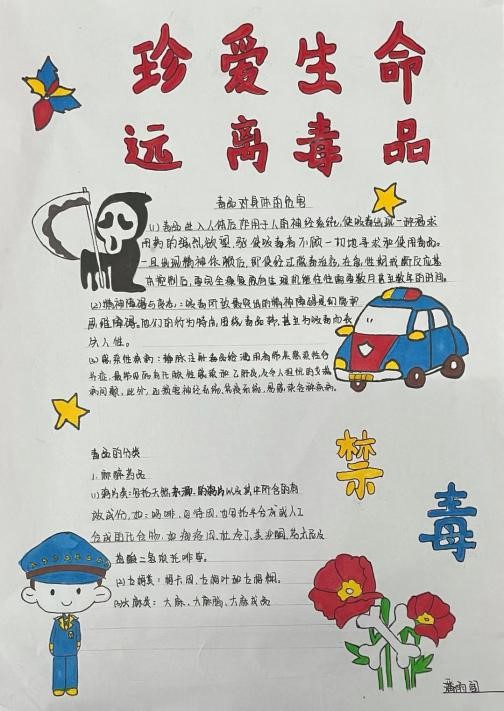 珍爱生命
远离毒品
毒品对身体的危害
(1) 毒品进入人体后作用于人的神经系统,使吸毒者出现一种渴求
用药的强烈欲望,驱使吸毒者不顾一切地寻求和使用毒品。
一旦出现精神依赖后,即使经过脱毒治疗,在急性期戒断反应基
本控制后,要完全康复原有生理机能往往需要数月甚至数年的时间。
(2) 精神障碍与变态:吸毒所致最突出的精神障碍是幻觉和
思维障碍。他们的行为特点围绕毒品转,甚至为吸毒而丧
失人性。
(3) 感染性疾病:静脉注射毒品给滥用者带来感染性合
并症,最常见的有化脓性感染和乙肝炎,及令人担忧的艾滋
病问题,此外,还损害神经系统,免疫系统,易感染各种疾病。
毒品的分类
1. 麻醉药品
(1) 鸦片类:包括天然来源的鸦片以及其中所含的有
效成份,如:吗啡、可待因,也包括半合成或人工
合成的化合物,如海洛因、杜冷丁、美沙酮、
二氢埃托啡等。
(2) 可卡因、古柯叶和古柯糊。
(3) 大麻类:大麻、大麻脂、大麻
禁
毒